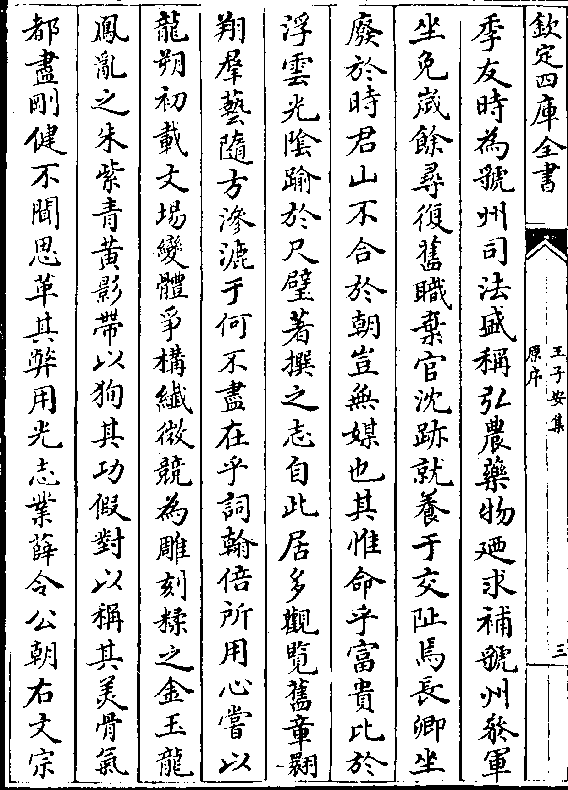 欽定四庫全書
王子安集
原序
三
季友時為虢州司法盛稱弘農藥物廼求補虢州叅軍
坐免嵗餘尋復舊職棄官沈跡就養于交阯焉長卿坐
廢於時君山不合於朝豈無媒也其惟命乎富貴比於
浮雲光隂踰於尺璧著撰之志自此居多觀覽舊章翺
翔羣藝隨方滲漉于何不盡在乎詞翰倍所用心嘗以
龍朔初載文塲變體爭構纖微競為雕刻糅之金玉龍
鳳亂之朱紫青黃影帶以狥其功假對以稱其美骨氣
都盡剛健不聞思革其弊用光志業薛令公朝右文宗